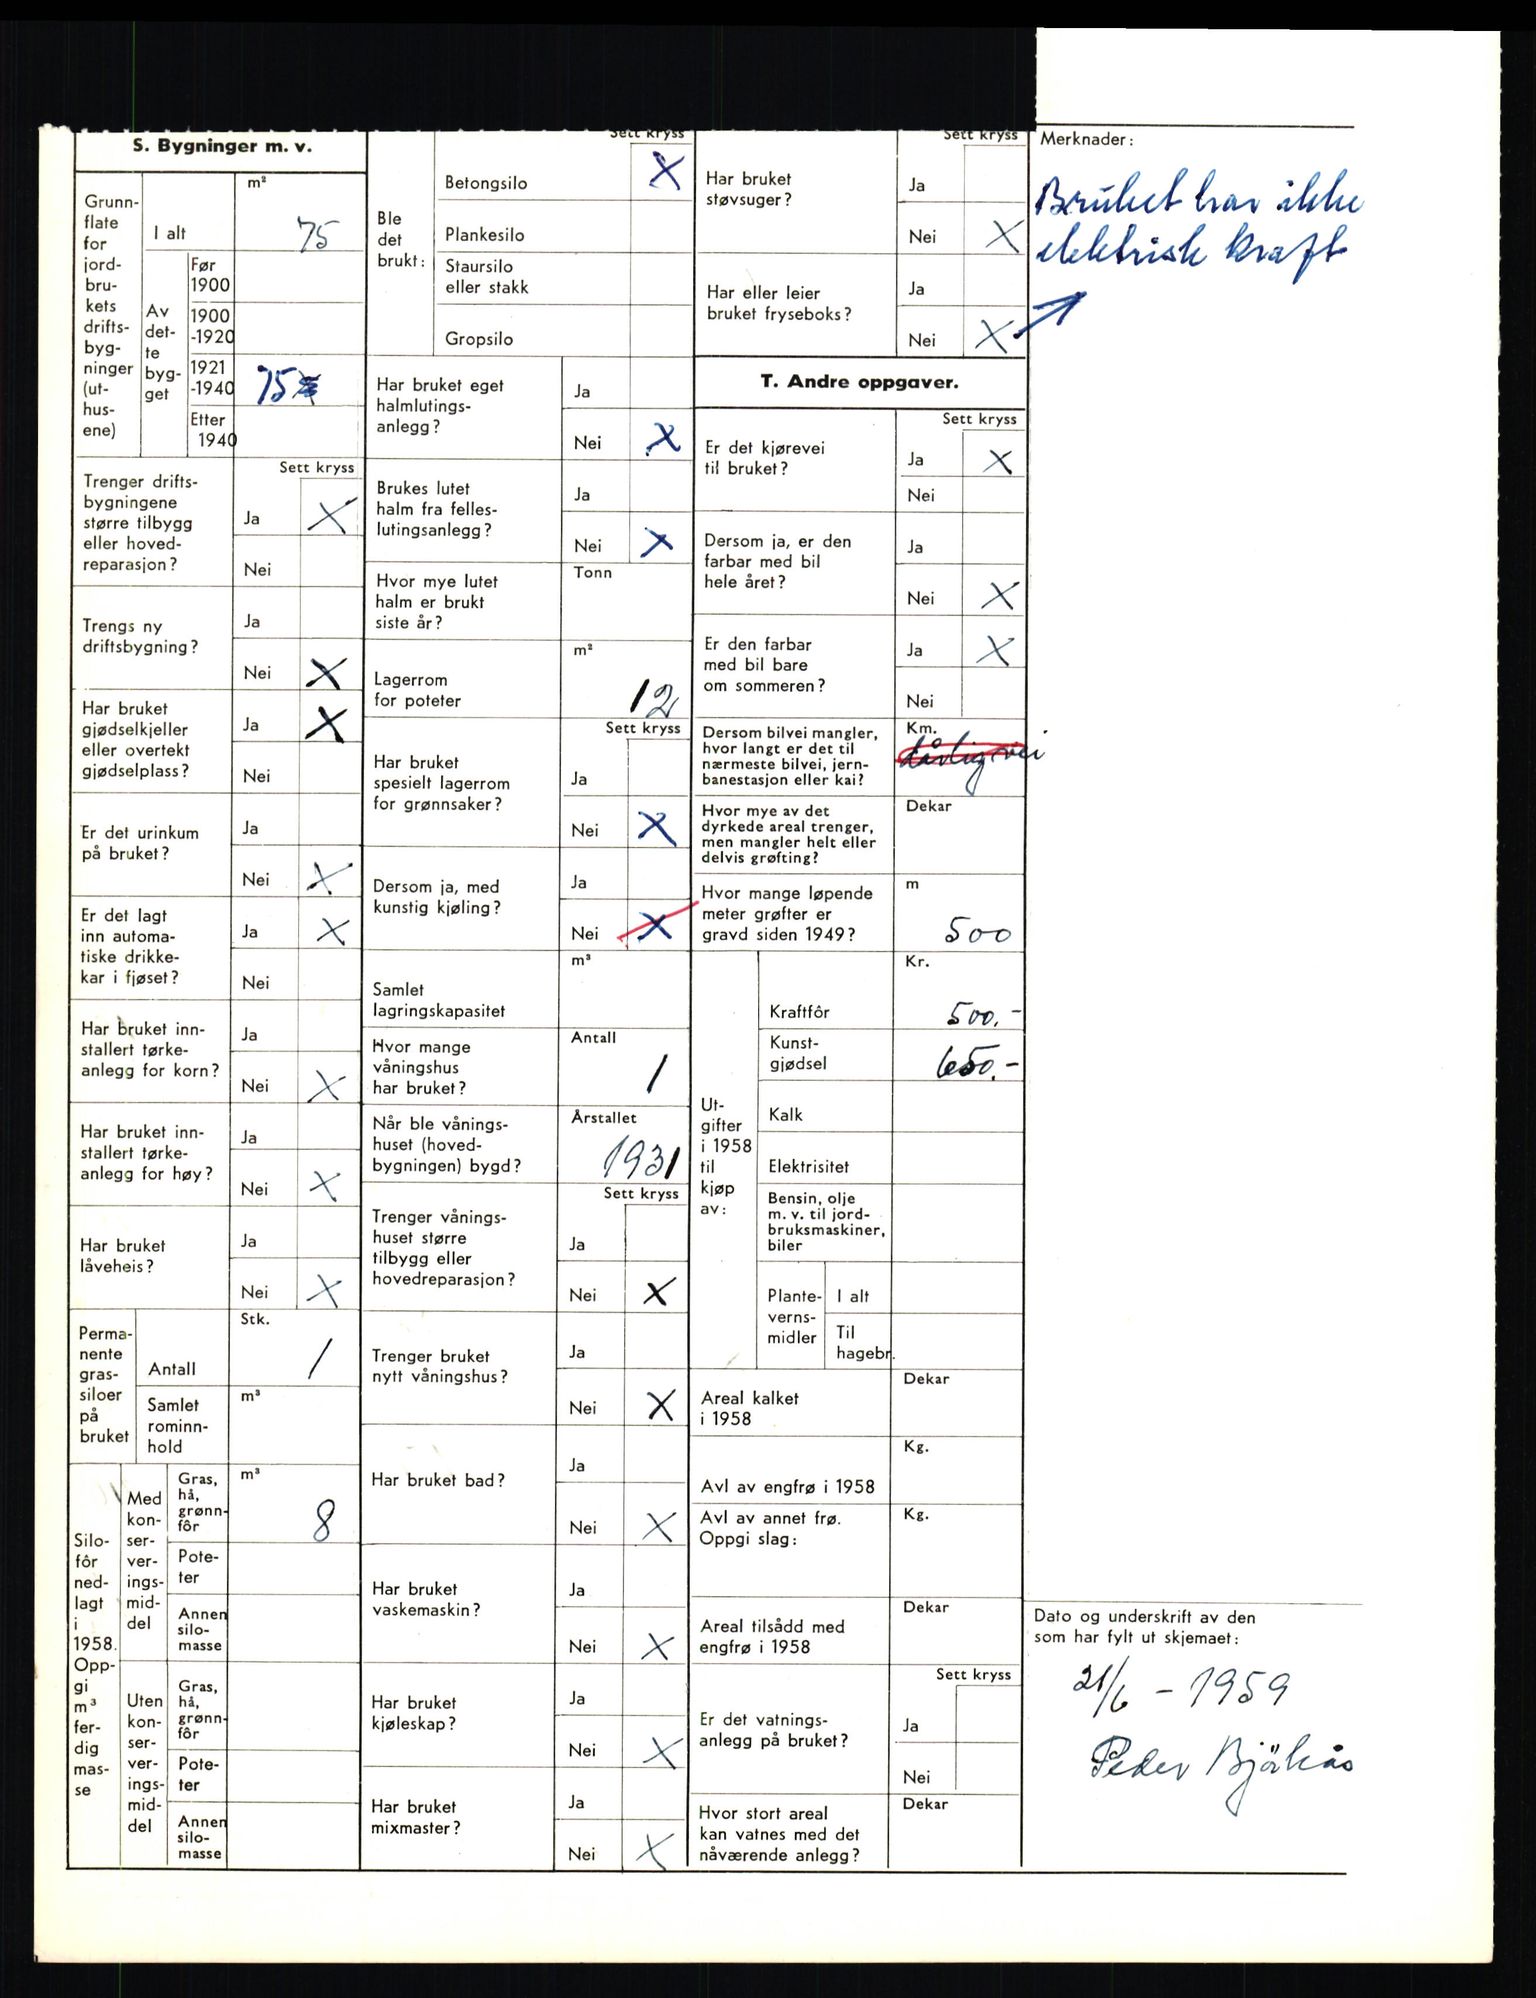 S. Bygninger m. v.
Grunn-
flate
for
jord-
bru-
kets
drifts-
byg-
ninger
(ut-
hus-
ene)
m²
I alt 75
Av
det-
te
byg-
get
Før
1900
1900
-1920
1921
-1940 75
Etter
1940
Sett kryss
Trenger drifts-
bygningene
større tilbygg
eller hoved-
reparasjon?
Ja X
Nei
Trengs ny
driftsbygning?
Ja
Nei X
Har bruket
gjødselkjeller
eller overtekt
gjødselplass?
Ja X
Nei
Er det urinkum
på bruket?
Ja
Nei X
Er det lagt
inn automa-
tiske drikke-
kar i fjøset?
Ja X
Nei
Har bruket inn-
stallert tørke-
anlegg for korn?
Ja
Nei X
Har bruket inn-
stallert tørke-
anlegg for høy?
Ja
Nei X
Har bruket
låveheis?
Ja
Nei X
Perma-
nente
gras-
siloer
på
bruket
Stk.
Antall 1
Samlet
rominn-
hold
m³
Silo-
fôr
ned-
lagt
i
1958.
Opp-
gi
m³
fer-
dig
mas-
se
Med
kon-
ser-
ver-
ings-
mid-
del
Gras,
hå,
grønn-
fôr
m³
8
Pote-
ter
Annen
silo-
masse
Uten
kon-
ser-
ver-
ings-
mid-
del
Gras,
hå,
grønn-
fôr
Pote-
ter
Annen
silo-
masse
Ble
det
brukt:
Sett kryss
Betongsilo X
Plankesilo
Staursilo
eller stakk
Gropsilo
Har bruket eget
halmlutings-
anlegg?
Ja
Nei X
Brukes lutet
halm fra felles-
lutingsanlegg?
Ja
Nei X
Hvor mye lutet
halm er brukt
siste år?
Tonn
Lagerrom
for poteter
m²
12
Sett kryss
Har bruket
spesielt lagerrom
for grønnsaker?
Ja
Nei X
Dersom ja, med
kunstig kjøling?
Ja
Nei X
Samlet
lagringskapasitet
m³
Hvor mange
våningshus
har bruket?
Antall
1
Når ble vånings-
huset (hoved-
bygningen) bygd?
Årstallet
1931
Sett kryss
Trenger vånings-
huset større
tilbygg eller
hovedreparasjon?
Ja
Nei X
Trenger bruket
nytt våningshus?
Ja
Nei X
Har bruket bad?
Ja
Nei X
Har bruket
vaskemaskin?
Ja
Nei X
Har bruket
kjøleskap?
Ja
Nei X
Har bruket
mixmaster?
Ja
Nei X
Sett kryss
Har bruket
støvsuger?
Ja
Nei X
Har eller leier
bruket fryseboks?
Ja
Nei X
T. Andre oppgaver.
Sett kryss
Er det kjørevei
til bruket?
Ja X
Nei
Dersom ja, er den
farbar med bil
hele året?
Ja
Nei X
Er den farbar
med bil bare
om sommeren?
Ja X
Nei
Dersom bilvei mangler,
hvor langt er det til
nærmeste bilvei, jern-
banestasjon eller kai?
Km.
dårlig vei
Hvor mye av det
dyrkede areal trenger,
men mangler helt eller
delvis grøfting?
Dekar
Hvor mange løpende
meter grøfter er
gravd siden 1949?
m
500
Ut-
gifter
i 1958
til
kjøp
av:
Kr.
Kraftfôr 500.-
Kunst-
gjødsel 650.-
Kalk
Elektrisitet
Bensin, olje
m. v. til jord-
bruksmaskiner,
biler
Plante-
verns-
midler
I alt
Til
hagebr.
Areal kalket
i 1958
Dekar
Avl av engfrø i 1958
Kg.
Avl av annet frø.
Oppgi slag:
Kg.
Areal tilsådd med
engfrø i 1958
Dekar
Sett kryss
Er det vatnings-
anlegg på bruket?
Ja
Nei
Hvor stort areal
kan vatnes med det
nåværende anlegg?
Dekar
Merknader:
Bruket har ikke
elektrisk kraft
Dato og underskrift av den
som har fylt ut skjemaet:
21/6 - 1959
Peder Bjökås